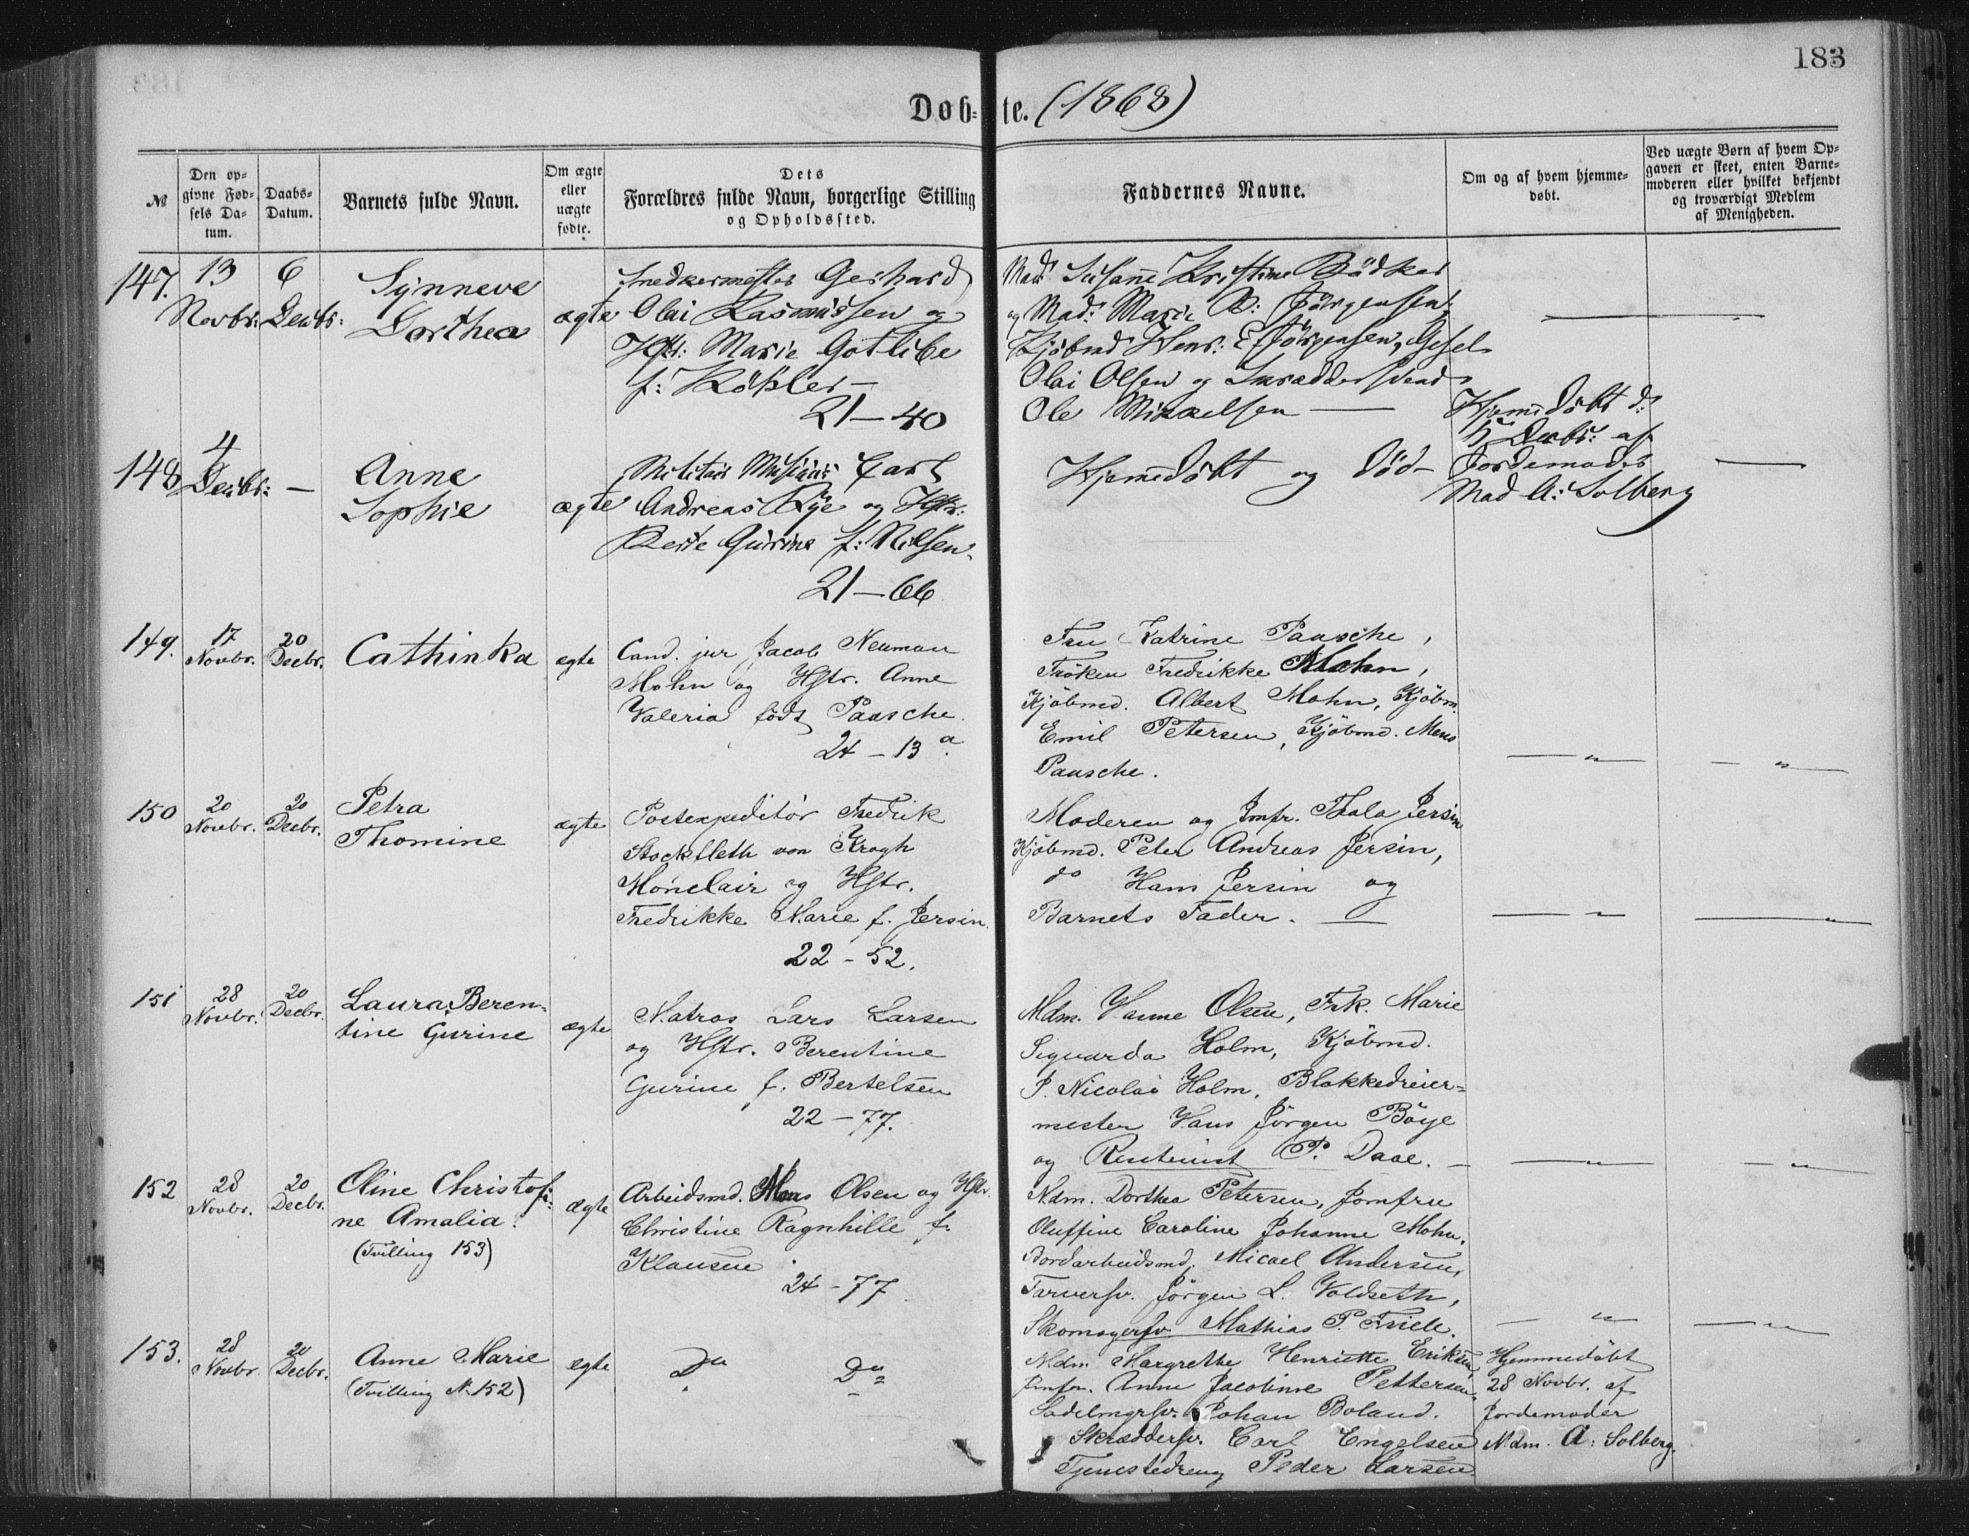 183
Døb-te. (1868)
№
Den op-
givne Fød-
sels Da-
tum.
Daabs-
Datum.
Barnets fulde Navn.
Om ægte
eller
uægte
fødte.
Dets
Forældres fulde Navn, borgerlige Stilling
og Opholdssted.
Faddernes Navne.
Om og af hvem hjemme-
døbt.
Ved uægte Børn af hvem Op-
gaven er skeet, enten Barne-
moderen eller hvilket bekjendt
og troværdigt Medlem
af Menigheden.
147.
13
Novbr:
6
Decbr:
Synneve
Dorthea
ægte
Snedkermester Gerhard
Olai Rasmussen og
Hstr: Marie Gotlibe
f: Köhler —
21 — 40
Mad: Susane Kristine Bödker
og Mad: Marie Jörgensen,
Kjöbmd Henr: E Jörgensen, Gesel
Olai Olsen og
Ole Mikkelsen —
—
148
4
Decbr:
—
Anne
Sophie
ægte
Militair Musiker Carl
Andreas Rye og Hstr:
Berte Gurine f: Nilsen.
21 — 66
Hjemedöbt og död —
Hjemedöbt d:
5 Decbr: af
Jordemoder
Mad A: Solberg
—
149.
17
Novbr.
20
Decbr.
Cathinka
ægte
Cand. jur Jacob Neuman
Mohn og Hstr. Anne
Valeria födt Paasche.
24 – 13 a.
Fru Katrine Paasche,
Fröken Fredrikke Mohn,
Kjöbmd. Albert Mohn, Kjöbm.
Emil Petersen, Kjöbmd. Mens
Paasche.
— " —
— " —
150
20
Novbr.
20
Decbr.
Petra
Thomine
ægte
Postexpeditör Fredrik
Stockfleth von Krogh
Monclair og Hstr.
Fredrikke Marie f. Jersin.
22 – 52.
Moderen og Jmfr. Thala Jersin
Kjöbmd. Peter Andreas Jersin,
do Hans Jersin og
Barnets Fader. —
— " —
— "
151
28
Novbr.
20
Decbr.
Laura Beren-
tine Gurine
ægte
Matros Lars Larsen
og Hstr. Berentine
Gurine f. Bertelsen
22 – 77.
Mdm. Hanne Olsen, Frk. Marie
Siguarda Holm, Kjöbmd.
P. Nicolai Holm, Blokkedreier-
mester Hans Jörgen Böye
og Rentenist P. Daae. —
— " —
— " —
152
28
Novbr.
20
Decbr.
Oline Christofi-
ne Amalia.
(Tvilling 153)
ægte
Arbeidsmd. Mons Olsen og Hstr.
Christine Ragnhille f.
Klausen
24 – 77.
Mdm. Dorthea Petersen, Jomfru
Oluffine Caroline Johanne Mohn.
Bordarbeidsmd. Micael Andersen,
Farversv. Jörgen L. Voldseth,
Skomagersv. Mathias P. Friele.
— " —
— " —
153.
28
Novbr
20
Decbr.
Anne Marie
(Tvilling N. 152)
ægte
Do
Do
Mdm. Margrethe Henriette Eriksen,
Jomfru. Anne Jacobine Pettersen,
Sadelmgrsv. Johan Boland.
Skræddersv. Carl Engelsen
Tjenestedreng Peder Larsen.
Hjemmedöbt
28 Novbr. af
Jordemoder
Mdm. A: Solberg